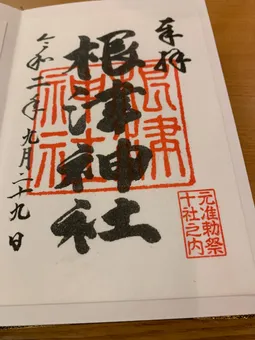 奉拝
根津神社
根津
神社
元准勅祭
十社之内
令和二年九月二十九日